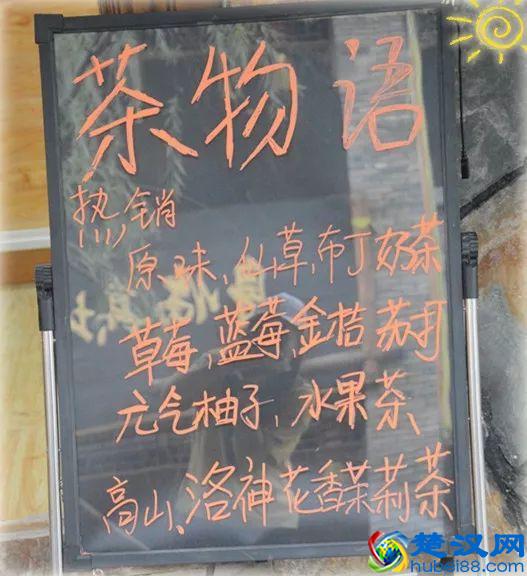 茶物语
热销
原味,仙草,布丁奶茶
草莓,蓝莓,金桔苏打
元气柚子,水果茶
高山、洛神花香茉莉茶
楚汉网
hubei88.com